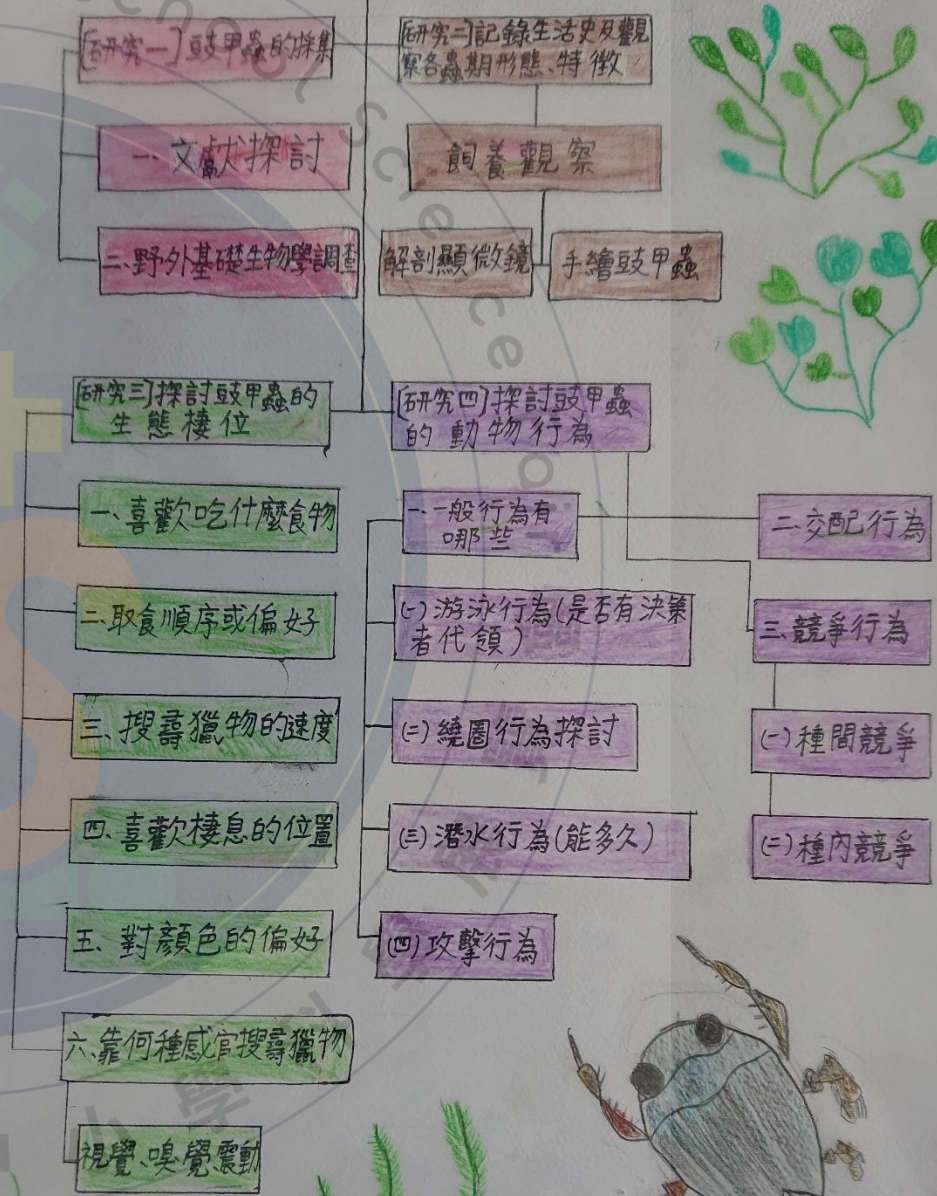 [研究一]豉甲蟲的採集
一、文獻探討
二、野外基礎生物學調查
[研究二]記錄生活史及觀
察各蟲期形態、特徵
飼養觀察
解剖顯微鏡
手繪豉甲蟲
[研究三]探討豉甲蟲的
生態棲位
一、喜歡吃什麼食物
二、取食順序或偏好
三、搜尋獵物的速度
四、喜歡棲息的位置
五、對顏色的偏好
六、靠何種感官搜尋獵物
視覺、嗅覺、震動
[研究四]探討豉甲蟲
的動物行為
一、一般行為有
哪些
(一)游泳行為(是否有決策
者代領)
(二)繞圈行為探討
(三)潛水行為(能多久)
(四)攻擊行為
二、交配行為
三、競爭行為
(一)種間競爭
(二)種內競爭